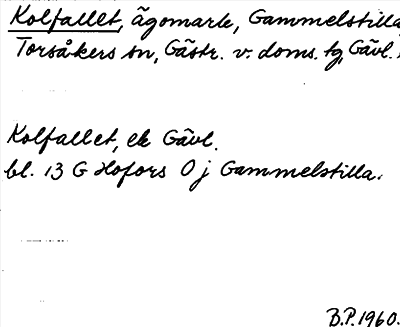 Kolfallet, ägomark, Gammelstilla,
Torsåkers sn, Gästr. v. doms. tg, Gävl.
Kolfallet, ek Gävl.
bl. 13 G Hofors 0 j Gammelstilla.
B.P. 1960.